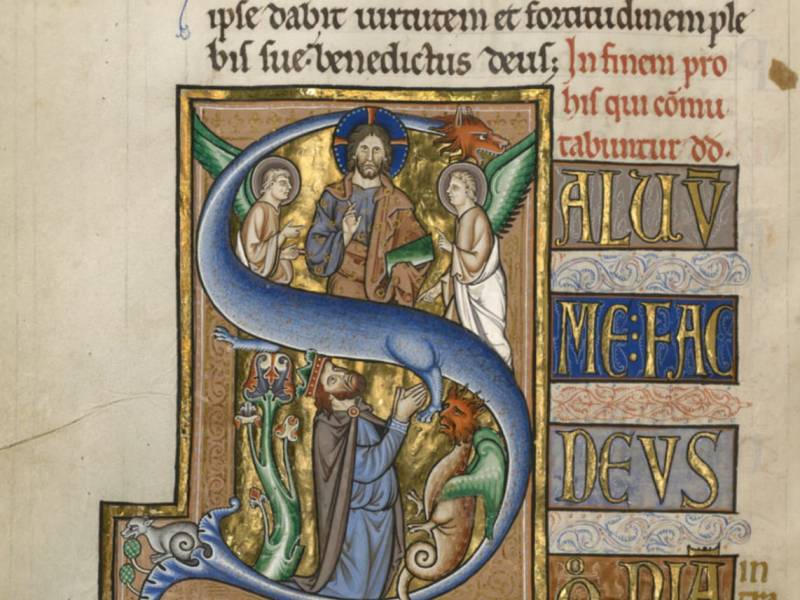 ipse dabit uirtutem et fortitudinem ple
bis sue· benedictus deus;
In finem pro
his qui cōmu
tabuntur dd·
S
ALUV̄
ME:FAC
DEVS
Q̄ NIĀ
in